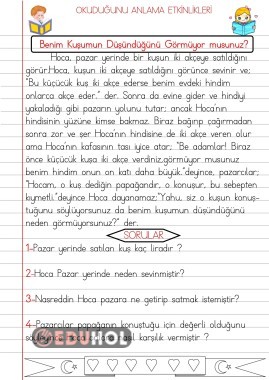 OKUDUĞUNU ANLAMA ETKİNLİKLERİ
Benim Kuşumun Düşündüğünü Görmüyor musunuz?
Hoca, pazar yerinde bir kuşun iki akçeye satıldığını
görür.Hoca, kuşun iki akçeye satıldığını görünce sevinir ve;
"Bu küçücük kuş iki akçe ederse benim evdeki hindim
onlarca akçe eder." der. Sonra da evine gider ve hindiyi
yakaladığı gibi pazarın yolunu tutar; ancak Hoca'nın
hindisinin yüzüne kimse bakmaz. Biraz bağırıp çağırmadan
sonra zor ve ser Hoca'nın hindisine de iki akçe veren olur
ama Hoca'nın kafasının tası iyice atar; "Be adamlar! Biraz
önce küçücük kuşa iki akçe verdiniz,görmüyor musunuz
benim hindim onun on katı daha büyük."deyince, pazarcılar;
"Hocam, o kuş dediğin papağandır, o konuşur, bu sebepten
kıymetli."deyince Hoca dayanamaz;"Yahu, siz o kuşun konuş-
tuğunu söylüyorsunuz da benim kuşumun düşündüğünü
neden görmüyorsunuz?" der.
SORULAR
1-Pazar yerinde satılan kuş kaç liradır ?
2-Hoca Pazar yerinde neden sevinmiştir?
3-Nasreddin Hoca pazara ne getirip satmak istemiştir?
4-Pazarcılar papağanın konuştuğu için değerli olduğunu
Hoca nasıl karşılık vermiştir ?
EDUHOL